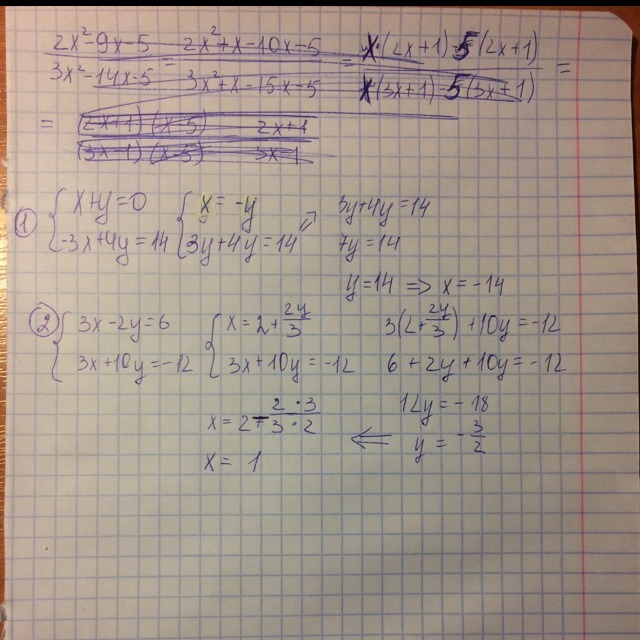 2x²-9x-5 / 3x²-14x-5 = 2x²+x-10x-5 / 3x²+x-15x-5 = x(2x+1)-5(2x+1) / x(3x+1)-5(3x+1) =
= (2x+1)(x-5) 2x+1 / (3x-1)(x-5) 3x-1
① { x+y=0 { x=-y 3y+4y=14
-3x+4y=14 3y+4y=14 ⇒ 7y=14
y=14 => x=-14
② { 3x-2y=6 { x=2+2y/3 3(2+2y/3)+10y=-12
3x+10y=-12 3x+10y=-12 6+2y+10y=-12
x=2-2·3/3·2 12y=-18
x=1 ⇐ y=-3/2